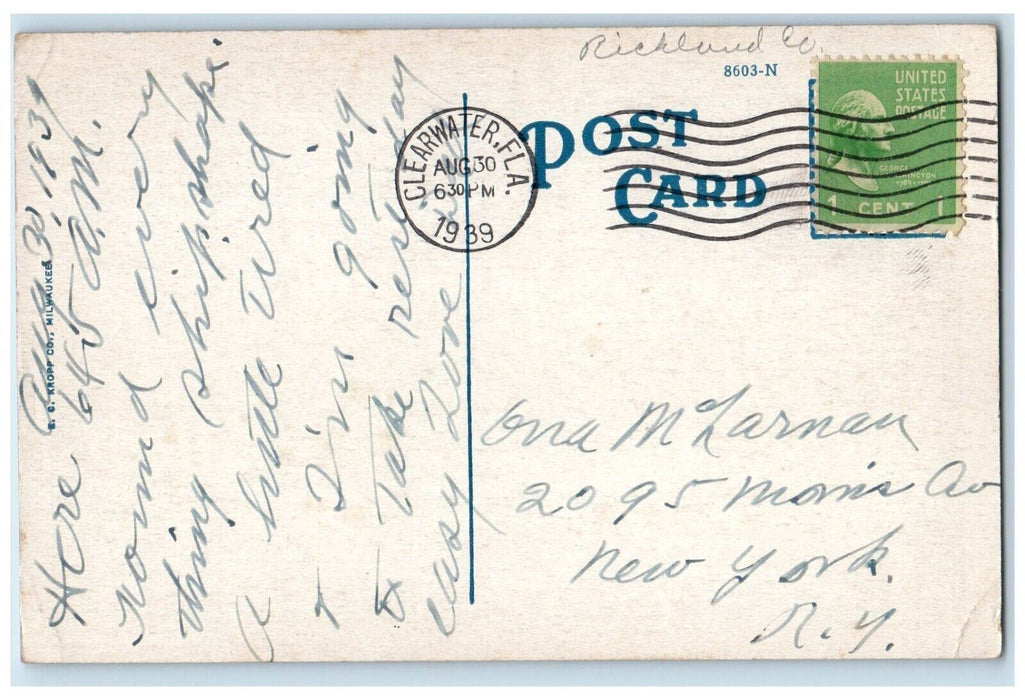 Richland Co.
8603-N
POST
CARD
CLEARWATER, FLA.
AUG 30
6 30 PM
1939
UNITED
STATES
POSTAGE
GEORGE
WASHINGTON
1 CENT 1
E. C. KROPP CO., MILWAUKEE
Aug, 30 1939
Here 645 A.M.
Found every
thing ship shape.
A little tired
+ I'm going
to take rest day
easy Love
Ona McLarnan
2095 Morris Av
New York.
N.Y.